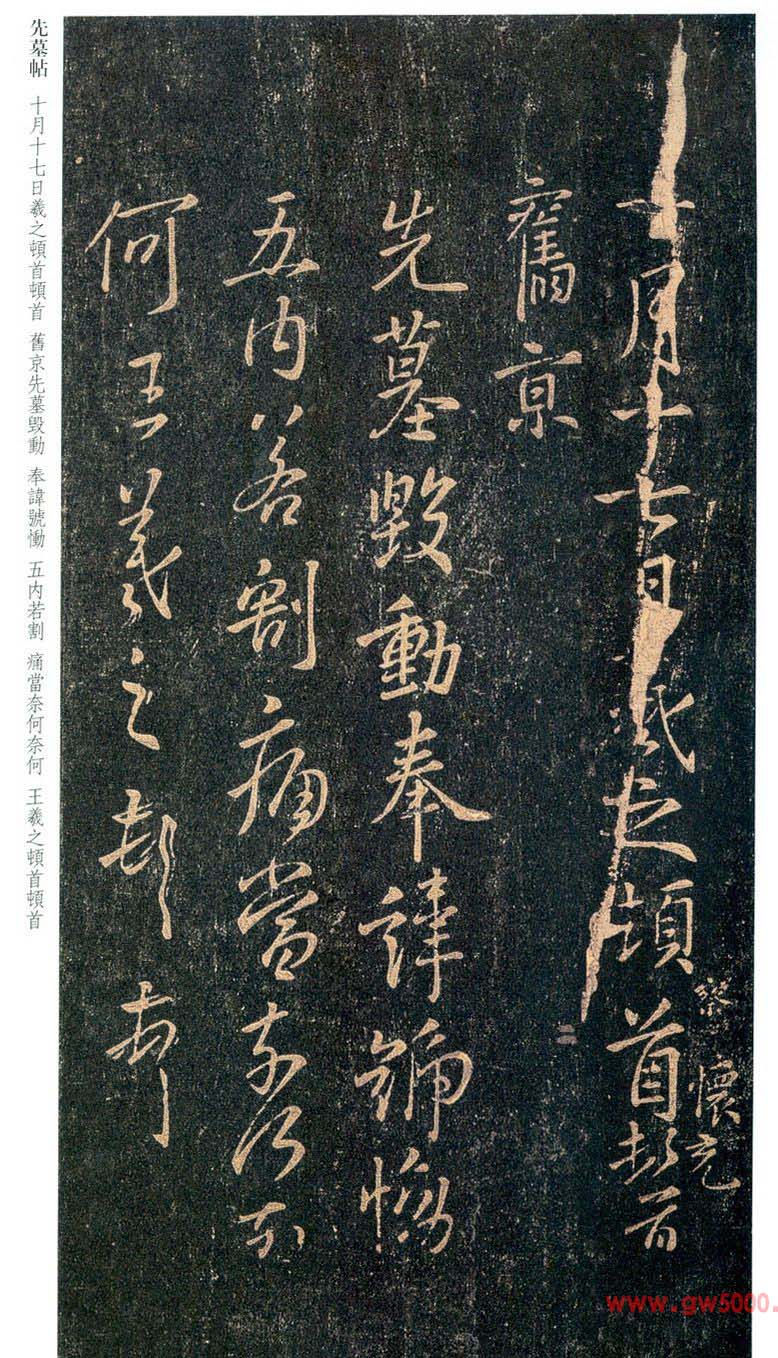 十月十七日羲之頓首頓首
察 懷充
舊京
先墓毀動奉諱號慟
五內若割痛當奈何奈
何王羲之頓首頓首
先墓帖 十月十七日羲之頓首頓首 舊京先墓毀動 奉諱號慟 五内若割 痛當奈何奈何 王羲之頓首頓首
www.gw5000.